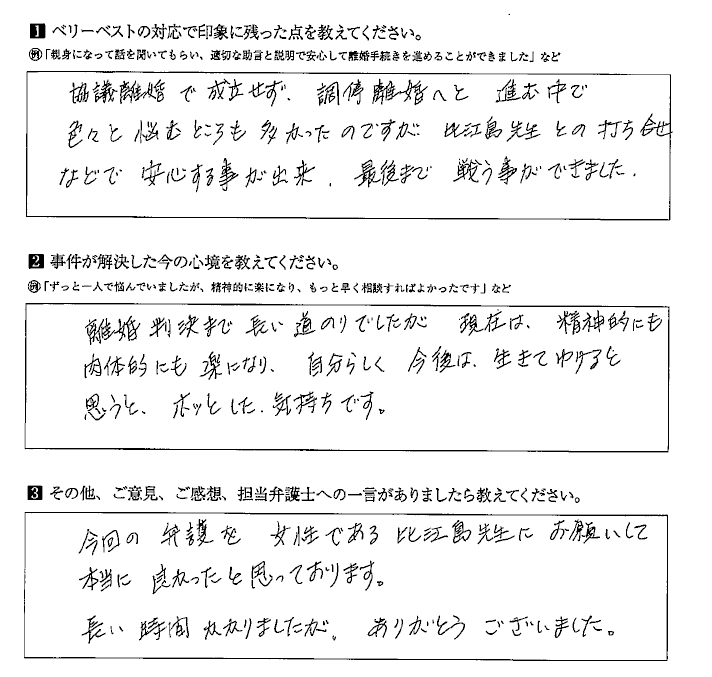 1 ベリーベストの対応で印象に残った点を教えてください。
例「親身になって話を聞いてもらい、適切な助言と説明で安心して離婚手続きを進めることができました」など
協議離婚で成立せず、調停離婚へと進む中で
色々と悩むところも多かったのですが比江島先生との打ち合せ
などで安心する事が出来、最後まで戦う事ができました。
2 事件が解決した今の心境を教えてください。
例「ずっと一人で悩んでいましたが、精神的に楽になり、もっと早く相談すればよかったです」など
離婚判決まで長い道のりでしたが現在は、精神的にも
肉体的にも楽になり、自分らしく今後は、生きてゆけると
思うと、ホッとした、気持ちです。
3 その他、ご意見、ご感想、担当弁護士への一言がありましたら教えてください。
今回の弁護を女性である比江島先生にお願いして
本当に良かったと思っております。
長い時間かかりましたが、ありがとうございました。